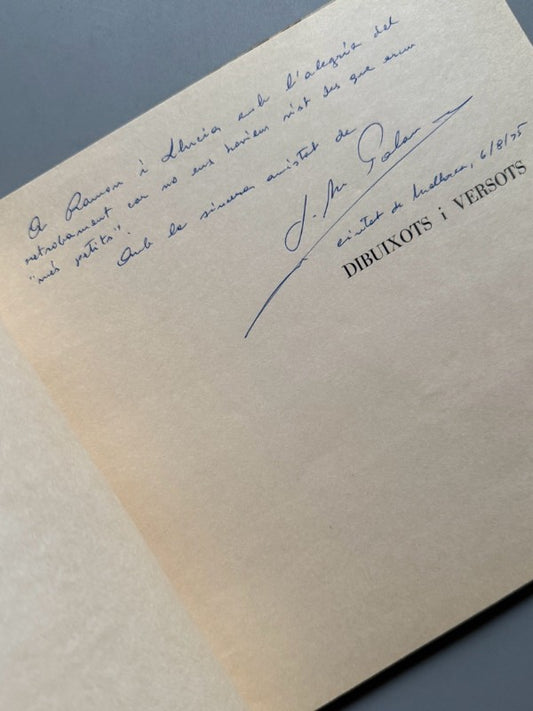 A Ramon i Llucia amb l'alegria del
retrobament car no ens haviem vist des que erem
"més petits".
Amb la sincera amistat de
J. M. Palau
Ciutat de Mallorca, 6/8/75
DIBUIXOTS i VERSOTS